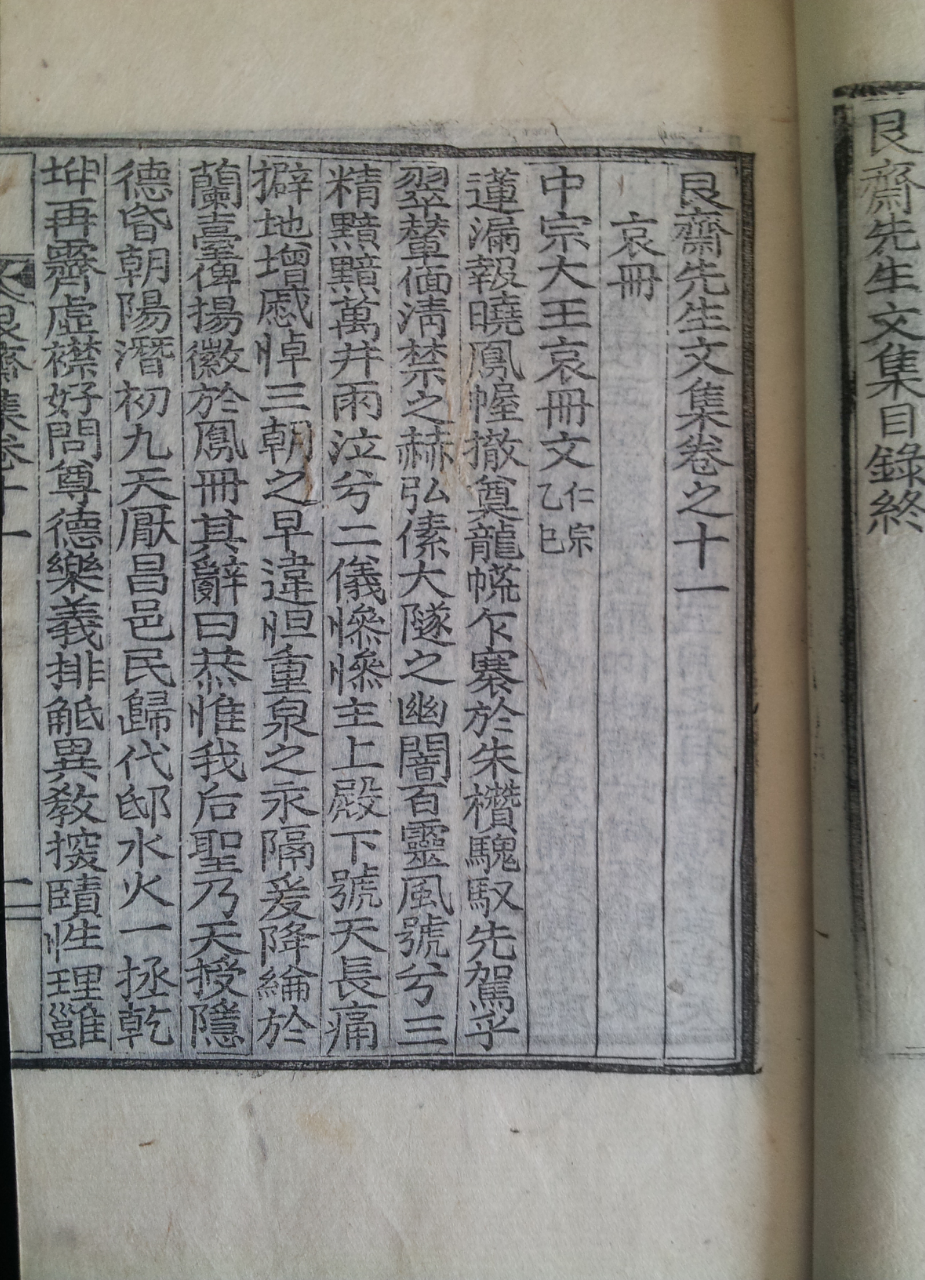 艮齋先生文集目錄終
艮齋先生文集卷之十一
哀冊
中宗大王哀冊文仁宗乙巳
蓮漏報曉鳳幄撤奠龍㡆乍褰於朱欑騩馭先駕乎
翠輦偭淸禁之赫弘傃大隧之幽闇百靈風號兮三
精黯黯萬井雨泣兮二儀慘慘主上殿下號天長痛
擗地增慼悼三朝之早違怛重泉之永隔爰降綸於
蘭臺俾揚徽於鳳冊其辭曰恭惟我后聖乃天授隱
德昏朝陽潛初九天厭昌邑民歸代邸水火一拯乾
坤再霽虛襟好問尊德樂義排觝異敎探賾性理雝
艮齋集卷十一
一